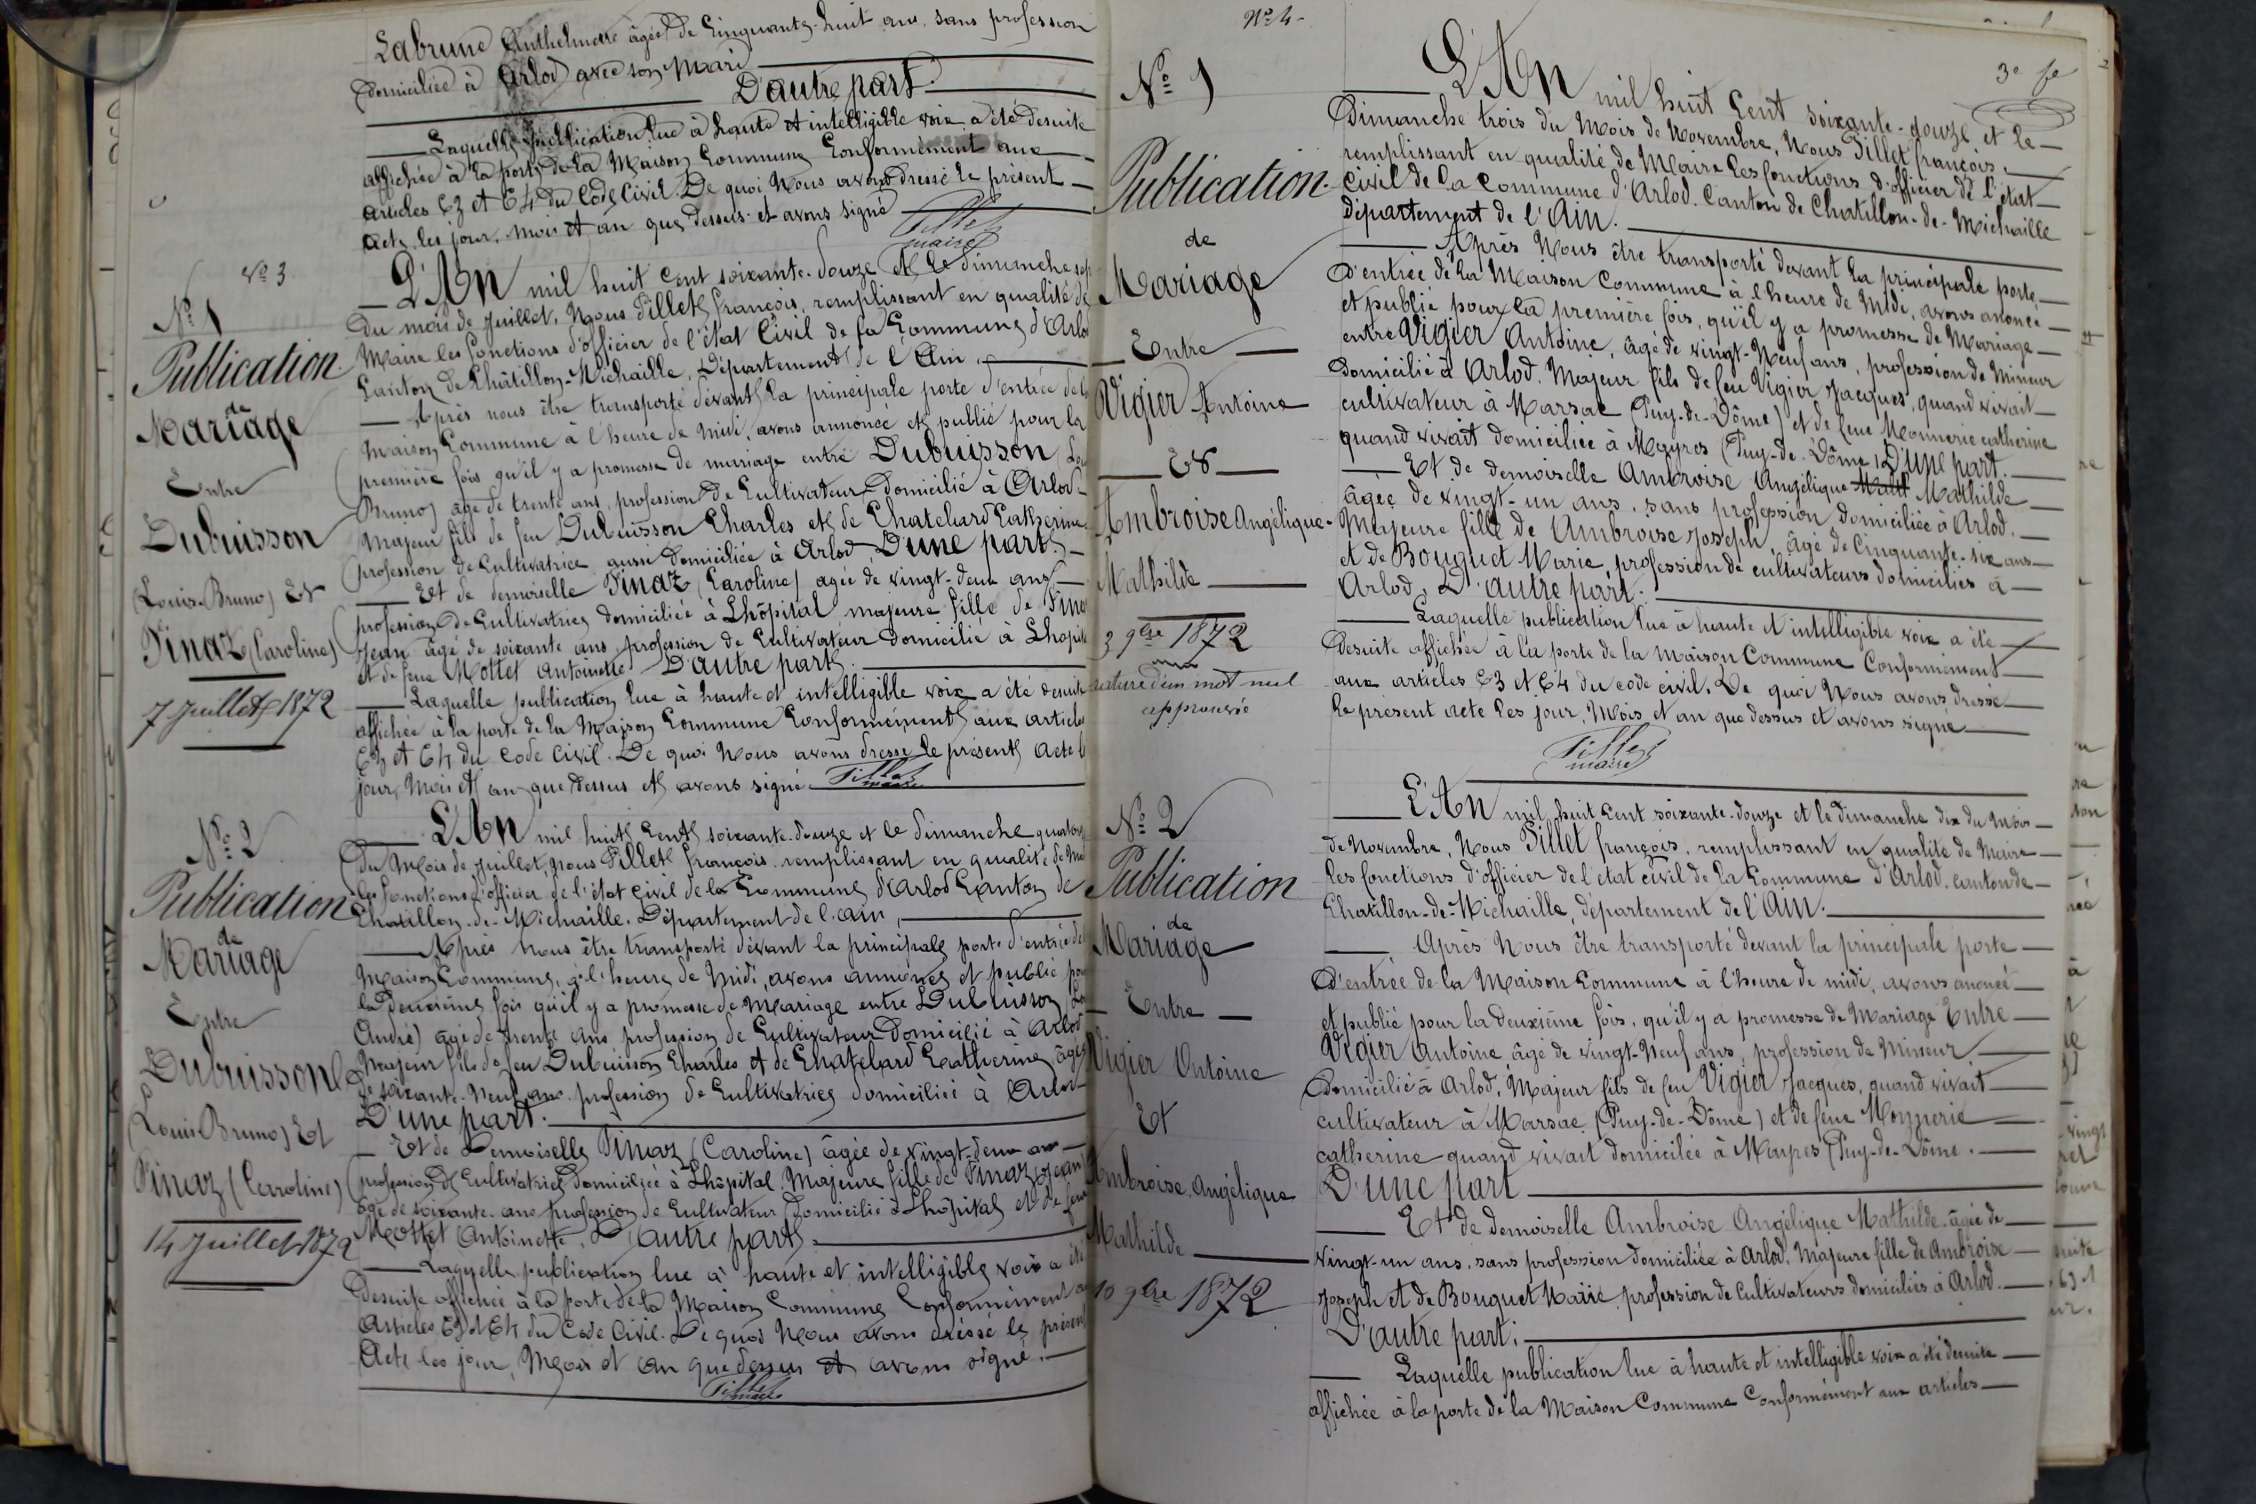 Labrune Anthelmette âgée de Cinquante-huit ans, sans profession
domiciliée à Arlod avec son Mari
D'autre part
Laquelle Publication lue à haute et intelligible voix a été desuite
affichée à la porte de la Maison Commune Conformément aux
articles 63 et 64 du Code Civil. De quoi Nous avons dressé le présent
acte les jour, mois et an que dessus et avons signé
Pillet
maire
N° 3
N° 1
Publication
de
Mariage
Entre
Dubuisson
(Louis-Bruno) Et
Pinaz (Caroline)
7 Juillet 1872
L'An mil huit Cent soixante-douze et le dimanche sept
du mois de Juillet, Nous Pillet françois, remplissant en qualité de
Maire les fonctions d'officier de l'état Civil de la Commune d'Arlod
Canton de Châtillon-Michaille, Département de l'Ain.
Après nous être transporté devant la principale porte d'entrée de la
Maison Commune à l'heure de midi, avons annoncé et publié pour la
première fois qu'il y a promesse de mariage entre Dubuisson Lou
Bruno) âgé de trente ans, profession de Cultivateur domicilié à Arlod
majeur fils de feu Dubuisson Charles et de Chatelard Catherine
profession de Cultivatrice aussi domiciliée à Arlod, D'une part.
Et de demoiselle Pinaz (Caroline) agée de vingt-deux ans
profession de Cultivatrice domiciliée à Lhôpital majeure fille de Pinaz
Jean âgé de soixante ans profession de Cultivateur domicilié à Lhopital
et de feue Mottet Antoinette. D'autre part.
Laquelle publication lue à haute et intelligible voix a été desuite
affichée à la porte de la Maison Commune Conformément aux articles
63 et 64 du Code Civil. De quoi Nous avons dressé le présent acte l
jour, Mois et an que dessus et avons signé
Pillet
maire
N° 2
Publication
de
Mariage
Entre
Dubuisson
(Louis Bruno) Et
Pinaz (Caroline)
14 Juillet 1872
L'An mil huit Cent soixante-douze et le dimanche quatorze
du Mois de Juillet, nous Pillet françois remplissant en qualité de Mai
les fonctions d'officier de l'état civil de la Commune d'Arlod Canton de
Chatillon-de-Michaille. Département de l'ain,
Après nous être transporté devant la principale porte d'entrée de
Maison Commune, à l'heure de Midi, avons annoncé et publié pou
la deuxième fois qu'il y a promesse de Mariage entre Dubuisson (Lou
André) âgé de trente ans profession de Cultivateur domicilié à Arlod
Majeur fils de feu Dubuisson Charles et de Chatelard Catherine âgée
de soixante-Neuf ans profession de Cultivatrice domiciliée à Arlod
D'une part.
Et de Demoiselle Pinaz (Caroline) âgée de vingt-deux ans
profession de Cultivatrice domiciliée à Lhôpital Majeure fille de Pinaz (Jean)
âgé de soixante ans profession de Cultivateur domicilié à Lhôpital et de feue
Mottet Antoinette, D'autre part.
Laquelle publication lue à haute et intelligible voix a été
desuite affichée à la porte de la Maison Commune Conformément au
Articles 63 et 64 du Code Civil. De quoi Nous avons dressé le présent
Acte les jour, Mois et an que dessus et avons signé.
Pillet
maire
N° 4
3e fe
N° 1
Publication
de
Mariage
Entre
Vigier Antoine
Et
Ambroise Angélique-
Mathilde
3 9bre 1872
rature d'un mot nul
approuvée
L'An mil huit Cent soixante-douze et le
Dimanche trois du Mois de Novembre, Nous Pillet françois,
remplissant en qualité de Maire les fonctions d'officier de l'état
Civil de la Commune d'Arlod. Canton de Chatillon-de-Michaille
département de l'Ain.
Après Nous être transporté devant la principale porte
d'entrée de la Maison Commune à l'heure de Midi, avons anoncé
et publié pour la première fois, qu'il y a promesse de Mariage
entre Vigier Antoine, âgé de vingt-Neuf ans, profession de Mineur
domicilié à Arlod. Majeur fils de feu Vigier Jacques, quand vivait
cultivateur à Marsac (Puy-de-Dôme) et de feue Monnerie catherine
quand vivait domiciliée à Mayres (Puy-de-Dôme) D'une part.
Et de demoiselle Ambroise Angélique Mathilde
âgée de vingt-un ans, sans profession domiciliée à Arlod.
Majeure fille de Ambroise Joseph, âgé de Cinquante-six ans
et de Bouquet Marie, profession de cultivateurs domiciliés à
Arlod, D'autre part.
Laquelle publication lue à haute et intelligible voix a été
desuite affichée à la porte de la Maison Commune Conformément
aux articles 63 et 64 du code civil. De quoi Nous avons dressé
le présent acte les jour, Mois et an que dessus et avons signé
Pillet
maire
N° 2
Publication
de
Mariage
Entre
Vigier Antoine
Et
Ambroise Angélique
Mathilde
10 9bre 1872
L'An mil huit Cent soixante-douze et le dimanche dix du Mois
de Novembre, Nous Pillet françois, remplissant en qualité de Maire
les fonctions d'officier de l'état civil de la Commune d'Arlod. canton de
Chatillon-de-Michaille, département de l'Ain.
Après Nous être transporté devant la principale porte
d'entrée de la Maison Commune à l'heure de midi, avons anoncé
et publié pour la deuxième fois, qu'il y a promesse de Mariage Entre
Vigier Antoine âgé de vingt-Neuf ans, profession de Mineur
Domicilié à Arlod, Majeur fils de feu Vigier Jacques, quand vivait
cultivateur à Marsac (Puy-de-Dôme) et de feue Monnerie
catherine quand vivait domiciliée à Mayres (Puy-de-Dôme.
D'une part
Et de demoiselle Ambroise Angélique Mathilde âgée de
vingt-un ans, sans profession domiciliée à Arlod. Majeure fille de Ambroise
Joseph et de Bouquet Marie profession de Cultivateurs domiciliés à Arlod.
D'autre part.
Laquelle publication lue à haute et intelligible voix a été desuite
affichée à la porte de la Maison Commune Conformément aux articles